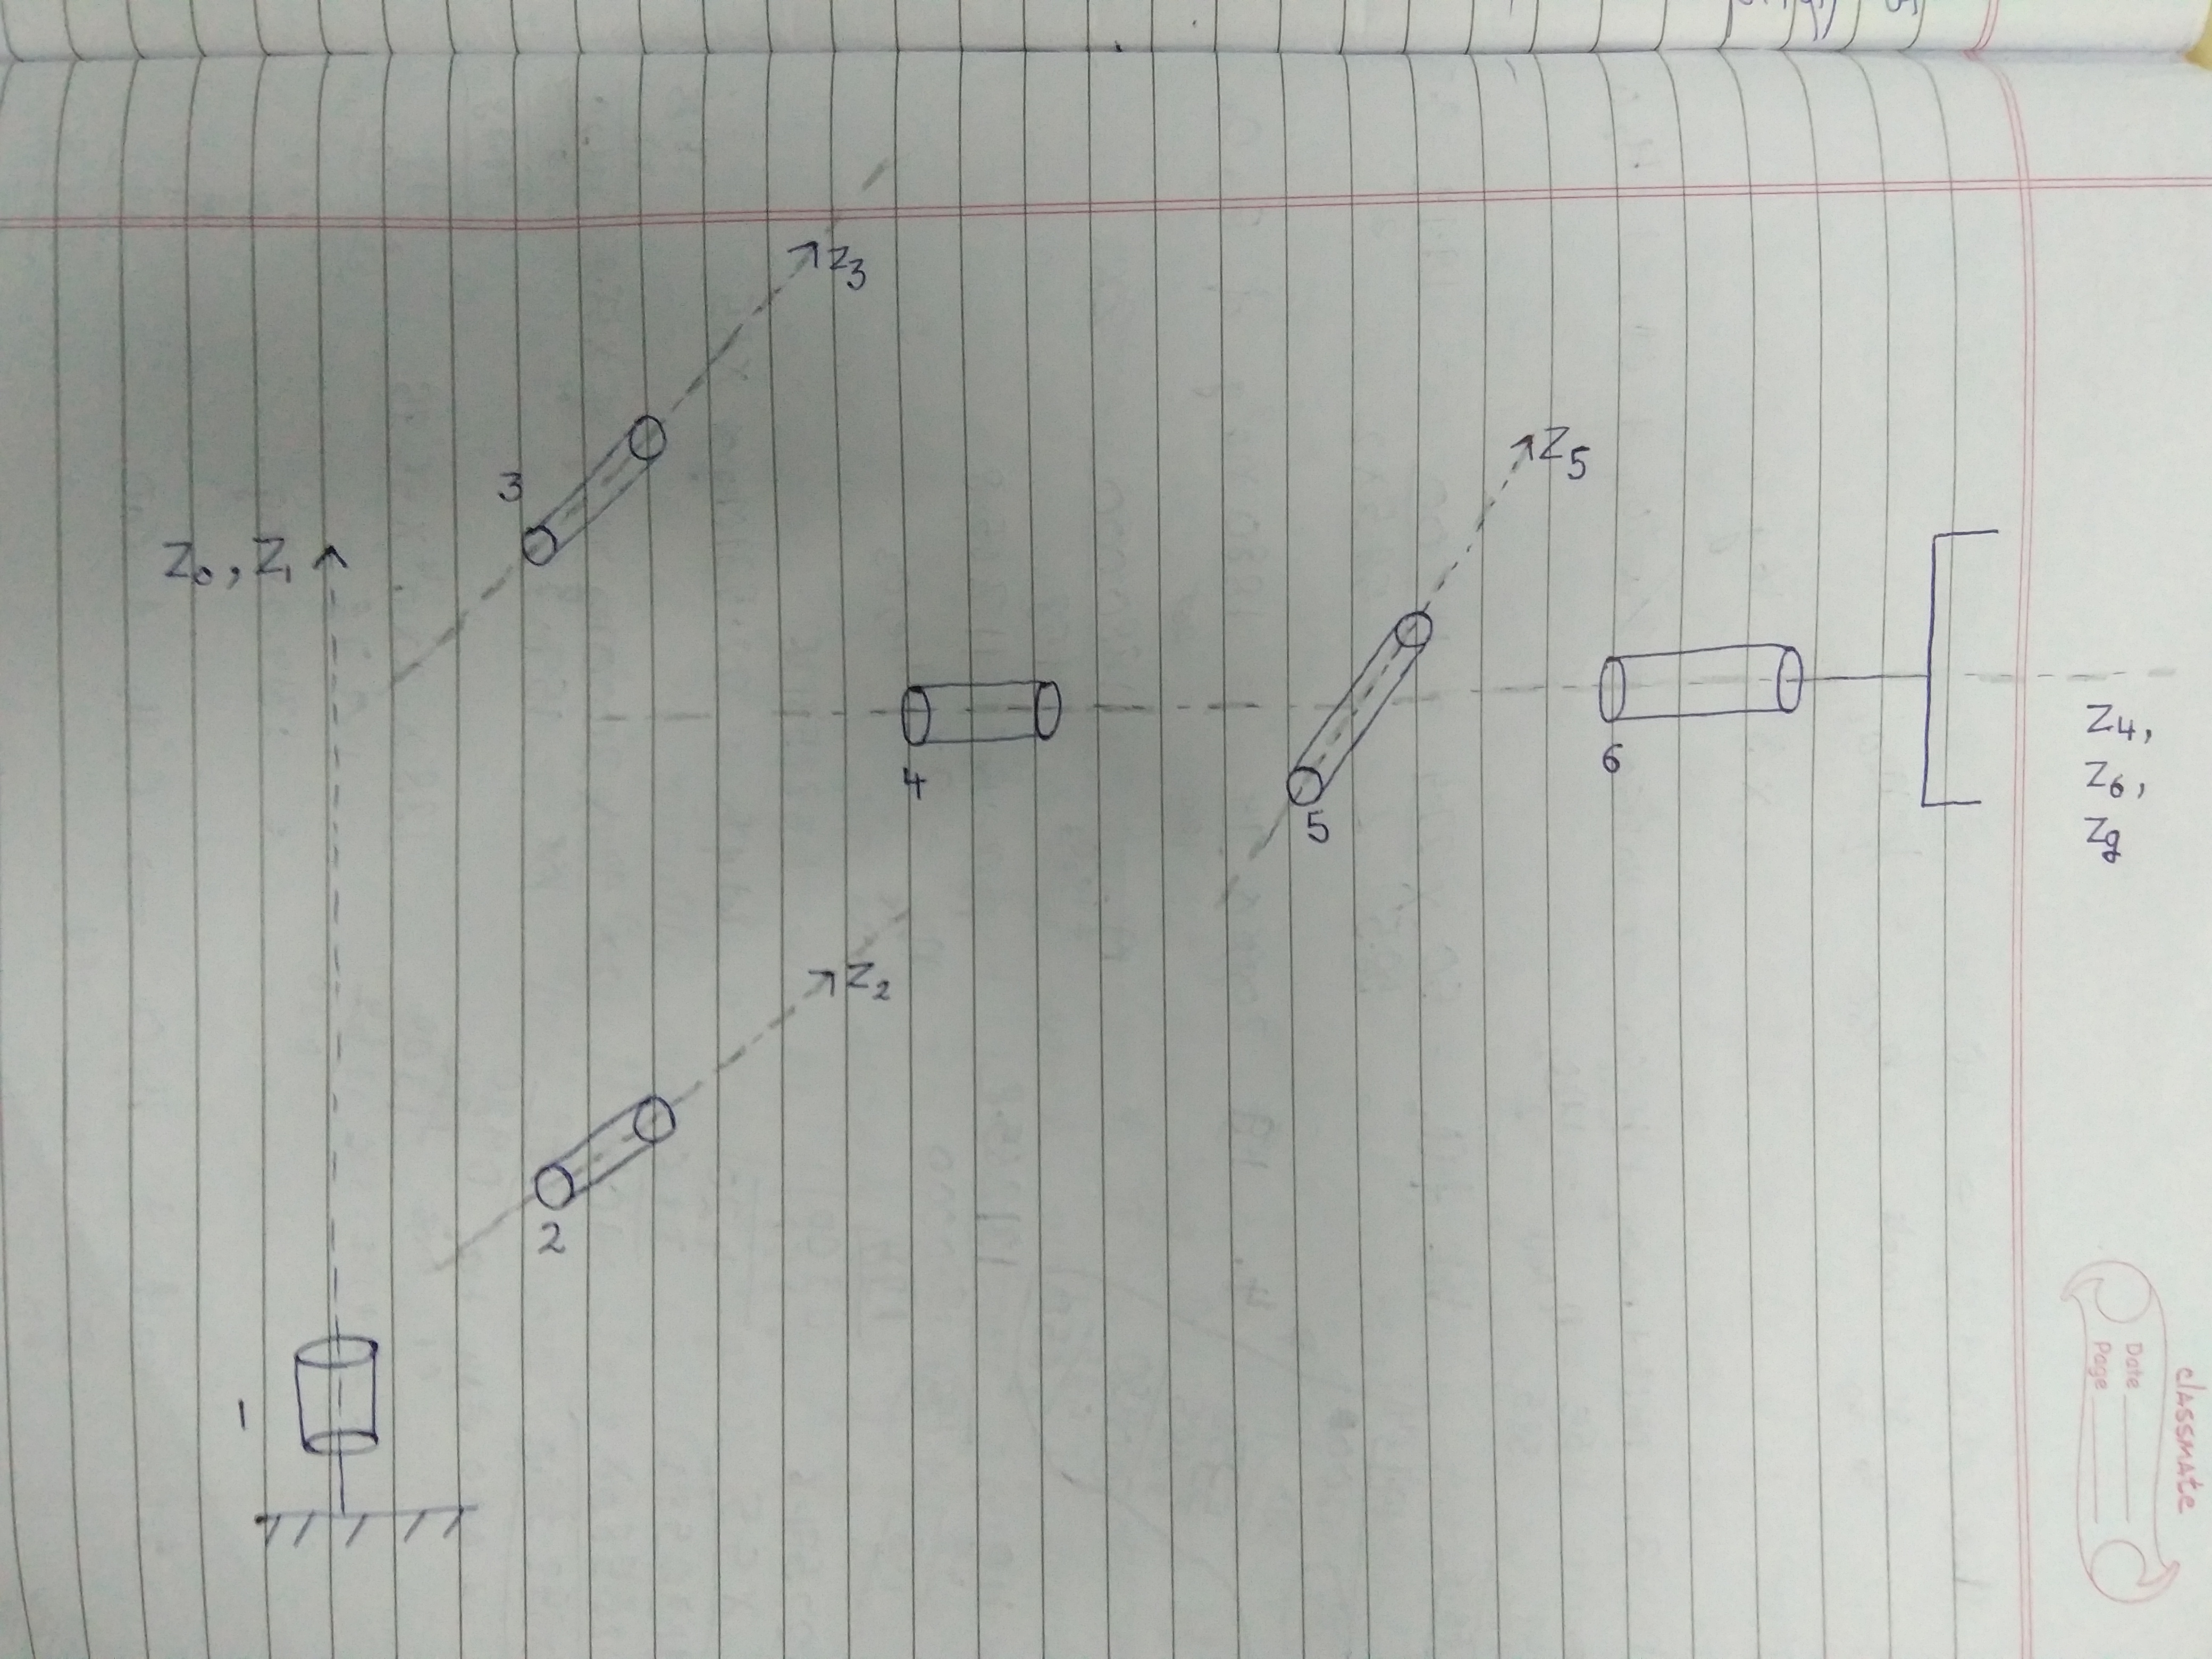 Z3
3
Z5
Z0, Z1
4
6
5
Z4,
Z6,
Zg
Z2
2
1
classmate
Date
Page